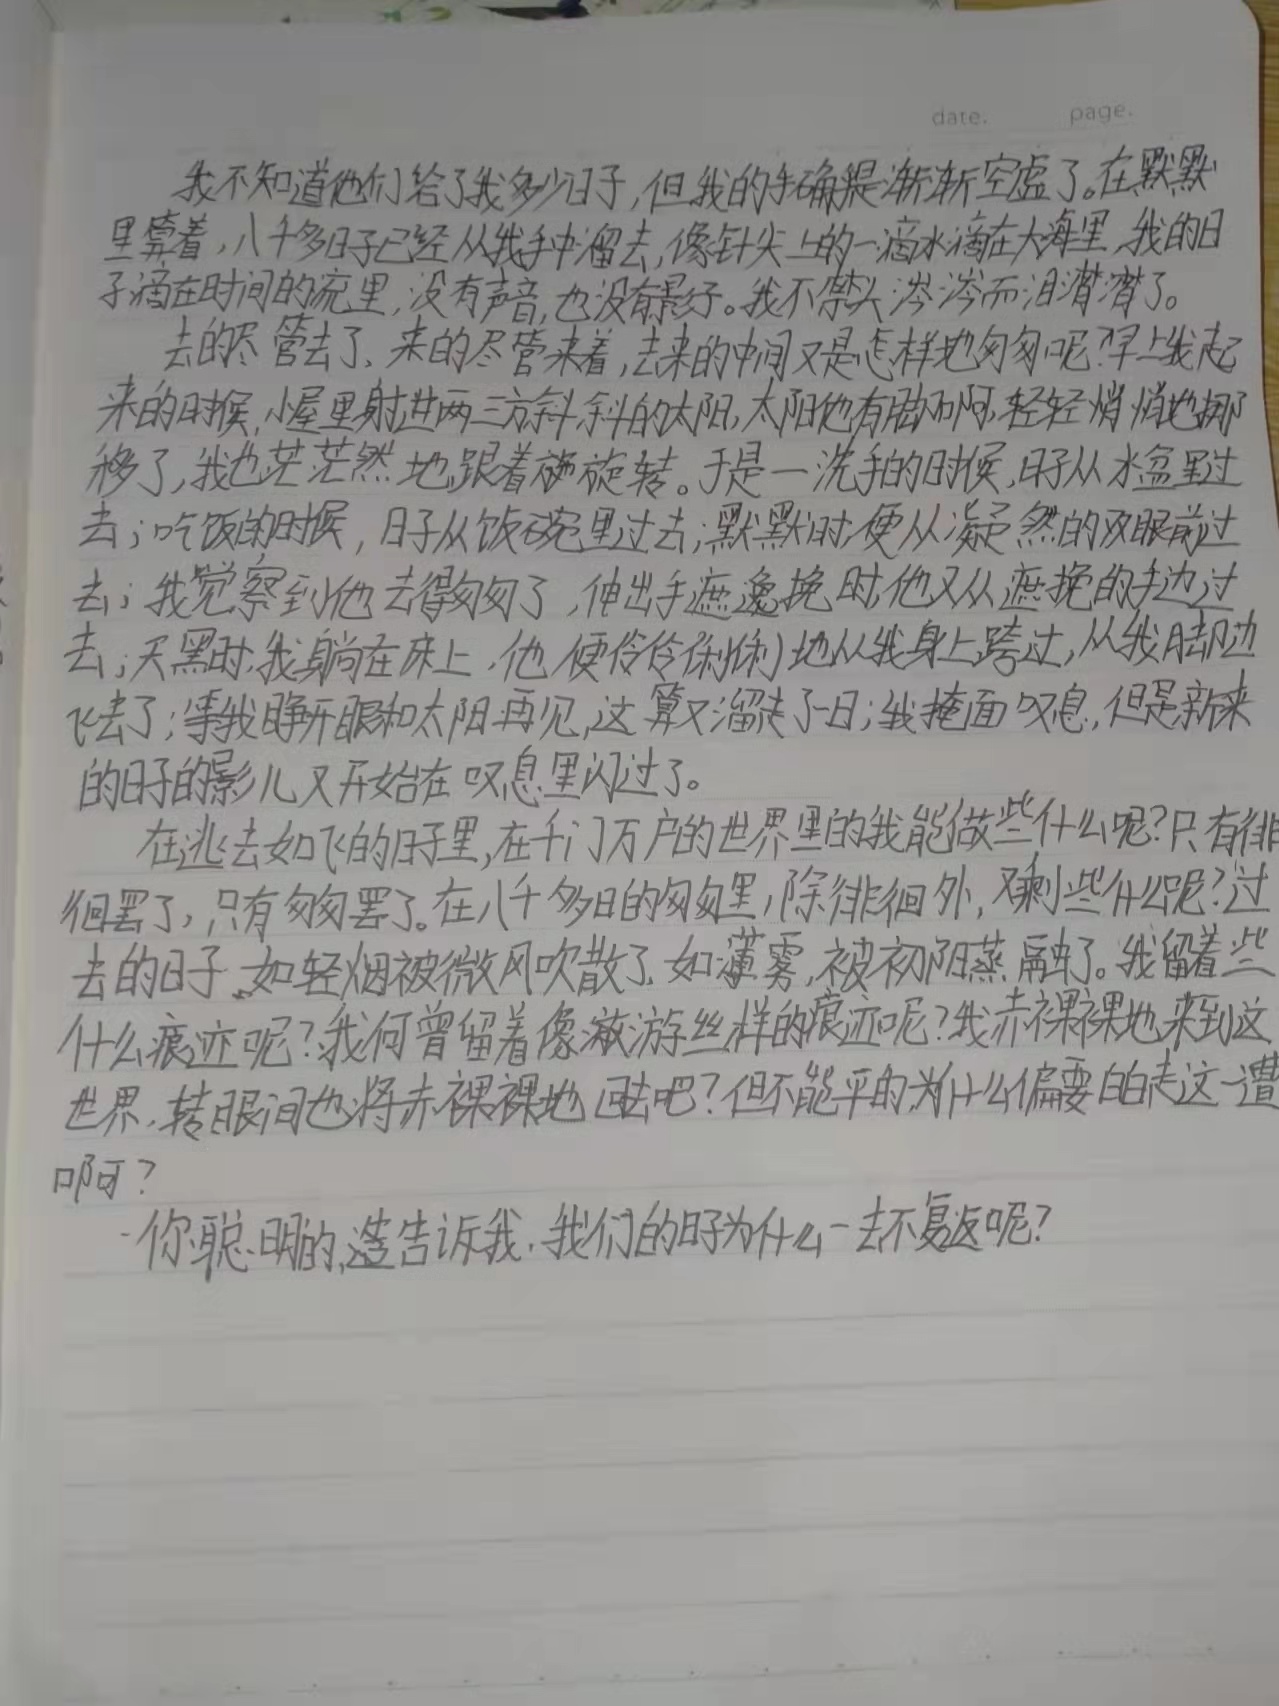 date. page.
我不知道他们给了我多少日子,但我的手确是渐渐空虚了。在默默
里算着,八千多日子已经从我手中溜去,像针尖上的一滴水滴在大海里,我的日
子滴在时间的流里,没有声音,也没有影子。我不禁头涔涔而泪潸潸了。
去的尽管去了、来的尽管来着,去来的中间又是怎样地匆匆呢?早上我起
来的时候,小屋里射进两三方斜斜的太阳,太阳他有脚啊,轻轻悄悄地挪
移了,我也茫茫然地跟着旋转。于是一洗手的时候,日子从水盆里过
去;吃饭的时候,日子从饭碗里过去;默默时,便从凝然的双眼前过
去;我觉察到他去得匆匆了,伸出手遮挽时,他又从遮挽的手边过
去;天黑时,我躺在床上,他便伶伶俐俐地从我身上跨过,从我脚边
飞去了;等我睁开眼和太阳再见,这算又溜走了一日;我掩面叹息,但是新来
的日子的影儿又开始在叹息里闪过了。
在逃去如飞的日子里,在千门万户的世界里的我能做些什么呢?只有徘
徊罢了,只有匆匆罢了。在八千多日的匆匆里,除徘徊外,又剩些什么呢?过
去的日子、如轻烟被微风吹散了、如薄雾,被初阳蒸融了。我留着些
什么痕迹呢?我何曾留着像游丝样的痕迹呢?我赤裸裸地来到这
世界,转眼间也将赤裸裸地回去吧?但不能平的,为什么偏要白白走这一遭
啊?
你聪明的,告诉我,我们的日子为什么一去不复返呢?